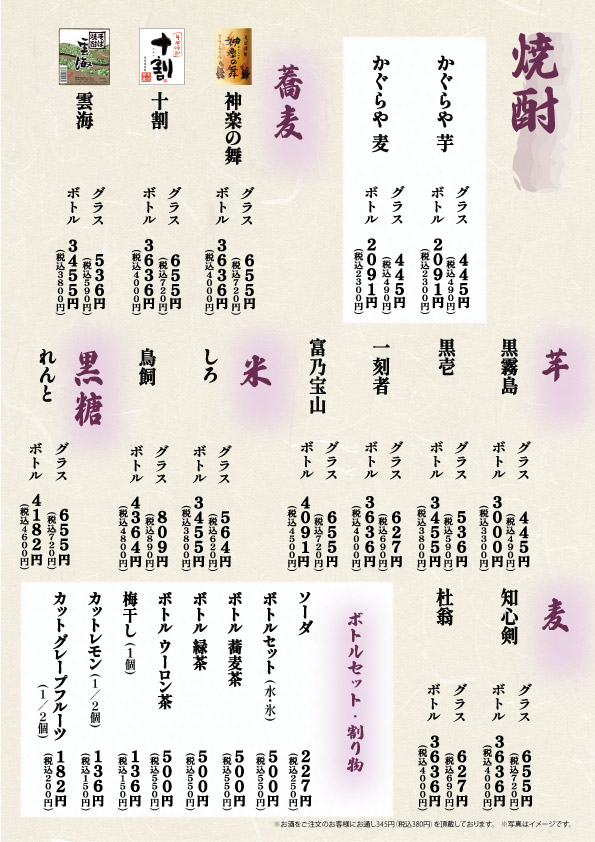 焼酎
かぐらや 芋
グラス 445円
(税込490円)
ボトル 2091円
(税込2300円)
かぐらや 麦
グラス 445円
(税込490円)
ボトル 2091円
(税込2300円)
蕎麦
神楽の舞
神楽の舞
グラス 655円
(税込720円)
ボトル 3636円
(税込4000円)
十割
十割
グラス 655円
(税込720円)
ボトル 3636円
(税込4000円)
雲海
雲海
グラス 536円
(税込590円)
ボトル 3455円
(税込3800円)
芋
黒霧島
グラス 445円
(税込490円)
ボトル 3000円
(税込3300円)
黒壱
グラス 536円
(税込590円)
ボトル 3455円
(税込3800円)
一刻者
グラス 627円
(税込690円)
ボトル 3636円
(税込4000円)
富乃宝山
グラス 655円
(税込720円)
ボトル 4091円
(税込4500円)
米
しろ
グラス 564円
(税込620円)
ボトル 3455円
(税込3800円)
鳥飼
グラス 809円
(税込890円)
ボトル 4364円
(税込4800円)
黒糖
れんと
グラス 655円
(税込720円)
ボトル 4182円
(税込4600円)
麦
知心剣
グラス 655円
(税込720円)
ボトル 3636円
(税込4000円)
杜翁
グラス 627円
(税込690円)
ボトル 3636円
(税込4000円)
ボトルセット・割り物
ソーダ 227円
(税込250円)
ボトルセット(水・氷) 500円
(税込550円)
ボトル 蕎麦茶 500円
(税込550円)
ボトル 緑茶 500円
(税込550円)
ボトル ウーロン茶 500円
(税込550円)
梅干し(1個) 136円
(税込150円)
カットレモン(1/2個) 136円
(税込150円)
カットグレープフルーツ(1/2個) 182円
(税込200円)
※お酒をご注文のお客様にお通し345円(税込380円)を頂戴しております。 ※写真はイメージです。